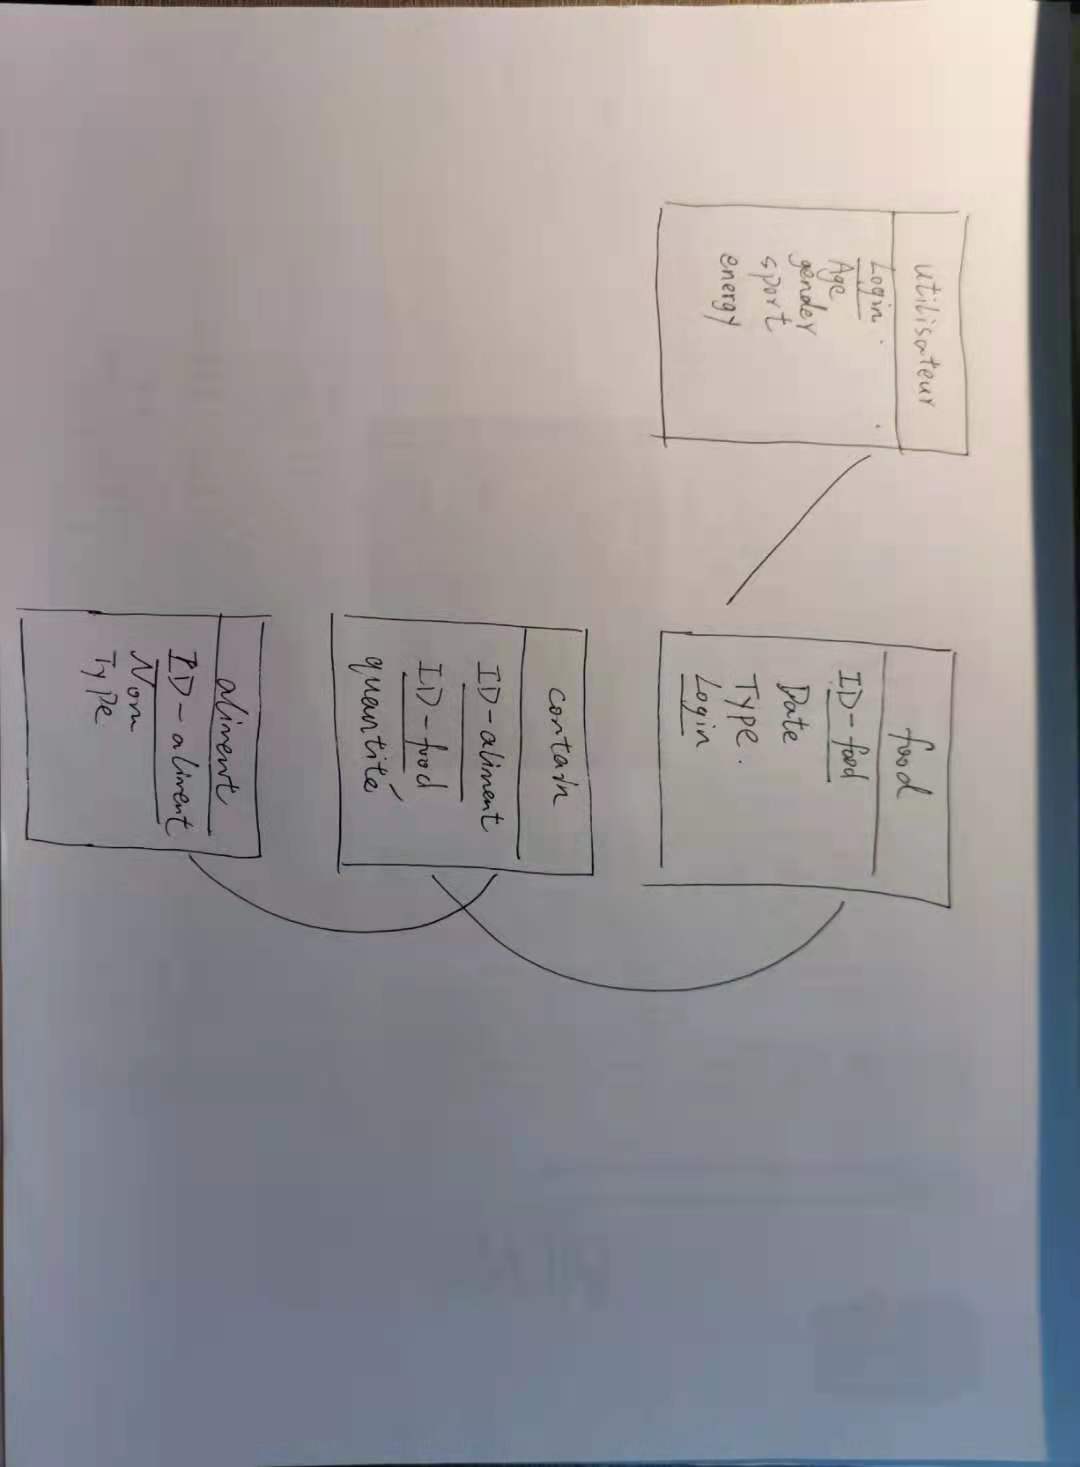 utilisateur
Login
Age
gender
sport
energy
food
ID-food
Date
Type.
Login
contain
ID-aliment
ID-food
quantité
aliment
ID-aliment
Nom
Type